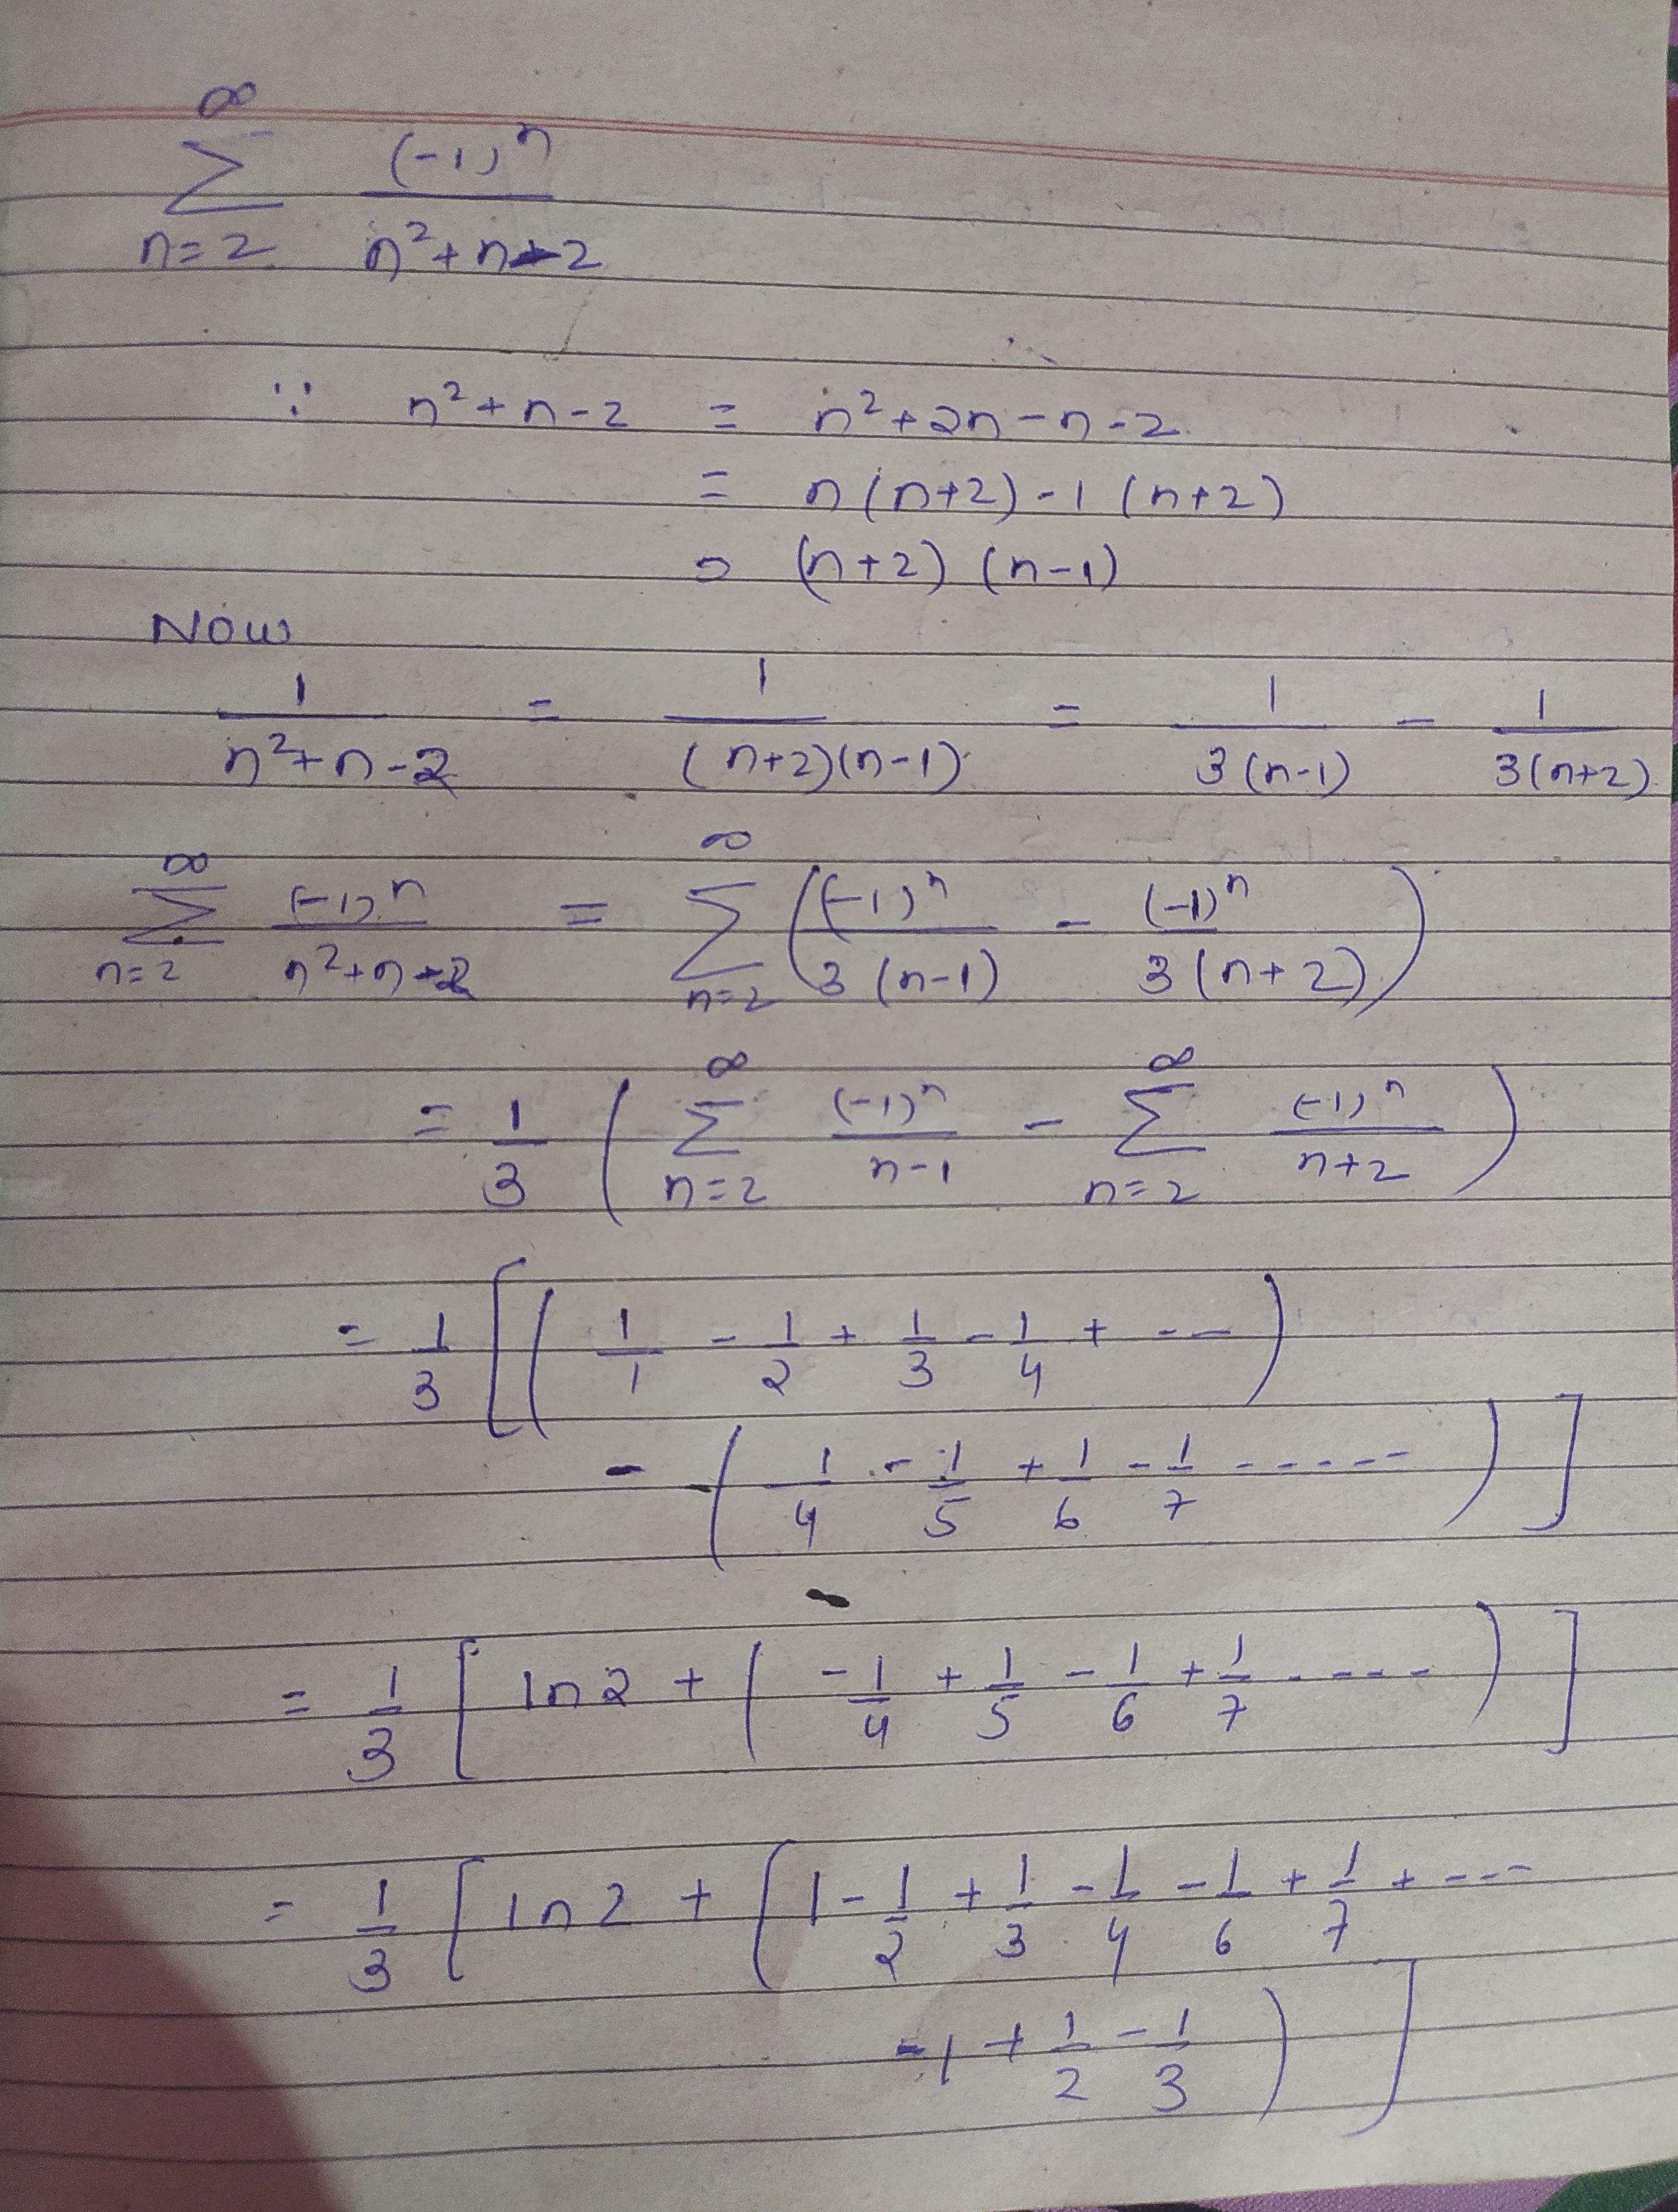 ∞
∑ (-1)^n / (n²+n-2)
n=2
∵ n²+n-2 = n²+2n-n-2
= n(n+2)-1(n+2)
= (n+2)(n-1)
Now
1/(n²+n-2) = 1/((n+2)(n-1)) = 1/(3(n-1)) - 1/(3(n+2))
∑_{n=2}^{∞} (-1)^n/(n²+n-2) = ∑_{n=2}^{∞} ((-1)^n/(3(n-1)) - (-1)^n/(3(n+2)))
= 1/3 (∑_{n=2}^{∞} (-1)^n/(n-1) - ∑_{n=2}^{∞} (-1)^n/(n+2))
= 1/3 [(1/1 - 1/2 + 1/3 - 1/4 + ---)
- (1/4 - 1/5 + 1/6 - 1/7 ------)]
= 1/3 [ln2 + (-1/4 + 1/5 - 1/6 + 1/7 -----)]
= 1/3 [ln2 + (1 - 1/2 + 1/3 - 1/4 - 1/6 + 1/7 + ---
-1 + 1/2 - 1/3)]